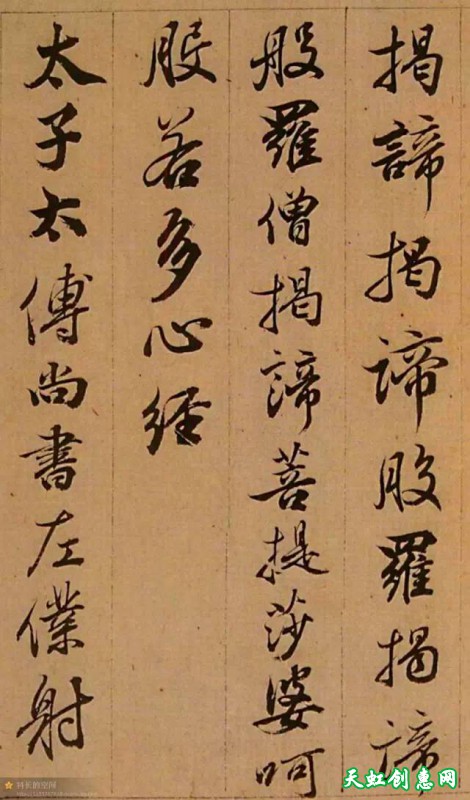 揭諦揭諦般羅揭諦
般羅僧揭諦菩提莎婆呵
般若多心経
太子太傅尚書左僕射
天虹创惠网